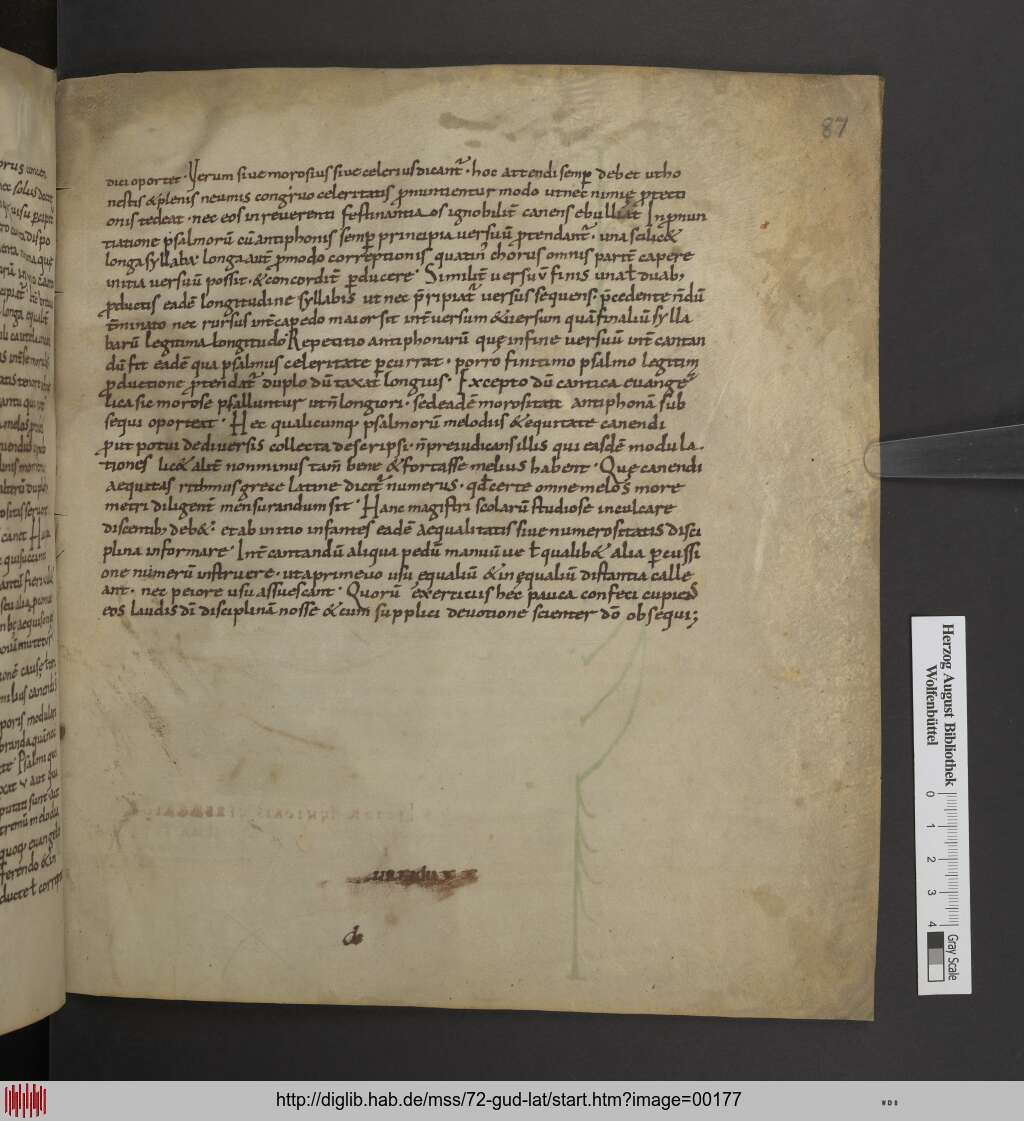 87
dici oportet. Verum sive morosius sive celerius dicant̄. hoc attendi semp̄ debet ut ho
nestis & plenis neumis congruo celeritatis p̄nuntientur modo ut nec nimię p̄tecti
onis tedeat. nec eos inreverenti festinantia os ignobilit̄ canens ebulliat In p̄nun
tiatione psalmorū cū antiphonis semp̄ principia versuū p̄tendant̄. una scilic&
longa syllaba. longa aut̄ p̄modo correptionis quatin' chorus omnis part̄ capere
initia versuū possit. & concordit̄ p̄ducere. Similit̄ versuū finis una ł duab;
p̄ductis eadē longitudine syllabis ut nec p̄ripiat̄ versus sequens. p̄cedente n̄dū
t̄minato nec rursus int̄capedo maior sit int̄ versum & versum quā finaliū sylla
barū legitima longitudo Repetitio antiphonarū quę infine versuū int̄ cantan
dū fit eadē qua psalmus celeritate p̄currat. porro finitimo psalmo legitim
p̄ductione p̄tendat̄ duplo dū taxat longius. Excepto dū cantica evange
lica sic morose psalluntur ut n̄ longiori. sed eadē morositate antiphonā sub
sequi oporteat. Hec qualicumq, psalmorū melodiis & equitate canendi
p̄ut potui de diversis collecta descripsi. n̄ preiudicans illis qui easdē modula
tiones lic& alit̄ non minus tam̄ bene & fortasse melius habent. Quę canendi
aequitas rithmus grece latine dicit̄ numerus. qd̄ certe omne melos more
metri diligent̄ mensurandum sit. Hanc magistri scolarū studiose inculcare
discentib; deb&. et ab initio infantes eadē aequalitatis sive numerositatis disci
plina informare. Int̄ cantandū aliqua pedū manuū ve ł qualib& alia p̄cussi
one numerū instruere. ut a primevo usu equaliū & inequaliū distantia calle
ant. nec peiore usu assuescant. Quorū exercitiis hec pauca confeci cupiens
eos laudis dī disciplinā nosse & cum supplici devotione scienter dō obsequi;
de
Herzog August Bibliothek
Wolfenbüttel
0 1 2 3 4
Gray Scale
http://diglib.hab.de/mss/72-gud-lat/start.htm?image=00177